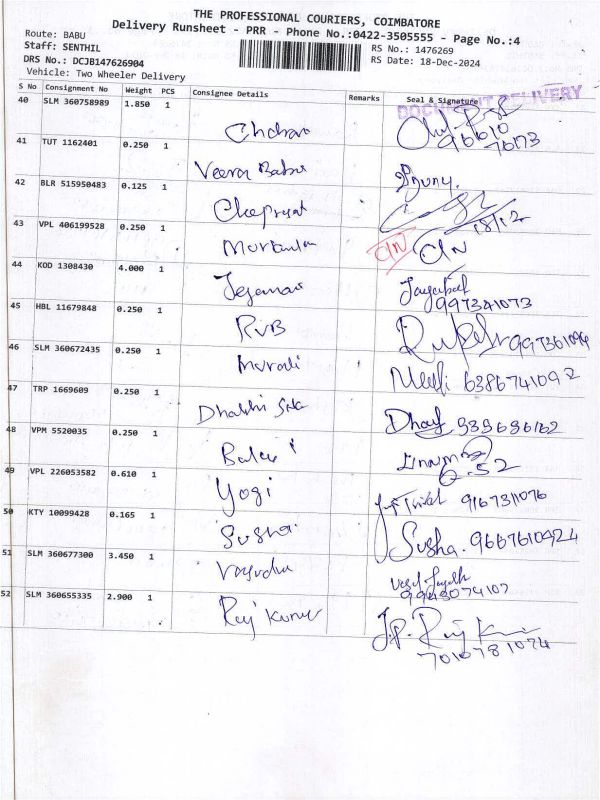 THE PROFESSIONAL COURIERS, COIMBATORE
Delivery Runsheet - PRR - Phone No.:0422-3505555 - Page No.:4
Route: BABU
Staff: SENTHIL
RS No.: 1476269
DRS No.: DCJB147626904
RS Date: 18-Dec-2024
Vehicle: Two Wheeler Delivery
S No Consignment No Weight PCS Consignee Details Remarks Seal & Signature
DOCUMENT DELIVERY
40 SLM 360758989 1.850 1
41 TUT 1162401 0.250 1
Veera Babu
42 BLR 515950483 0.125 1
18/12
43 VPL 406199528 0.250 1
C/N C/N
44 KOD 1308430 4.000 1
997341073
45 HBL 11679848 0.250 1
RVB
46 SLM 360672435 0.250 1
Murali 6386741092
47 TRP 1669609 0.250 1
939686162
48 VPM 5520035 0.250 1
6.52
49 VPL 226053582 0.610 1
Yogi 9167311076
50 KTY 10099428 0.165 1
Susha. 9667610924
51 SLM 360677300 3.450 1
52 SLM 360655335 2.900 1
Raj Kumar J.P. Raj
7010781074